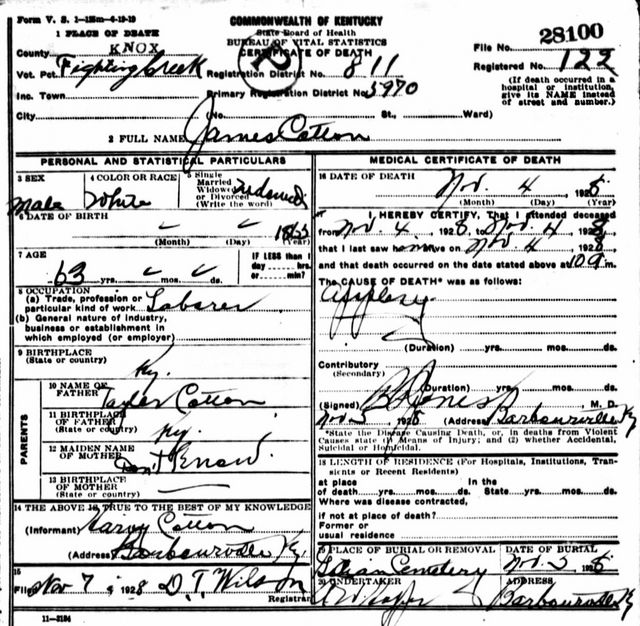 Form V. S. 1-125m-4-19-19
COMMONWEALTH OF KENTUCKY
1 PLACE OF DEATH
State Board of Health
BUREAU OF VITAL STATISTICS
CERTIFICATE OF DEATH
File No. 28100
County KNOX
Registered No. 122
Vot. Pct. Fighting Creek
Registration District No. 811
(If death occurred in a hospital or institution, give its NAME instead of street and number.)
Inc. Town
Primary Registration District No. 5970
City (No. St., Ward)
2 FULL NAME James Cotton
PERSONAL AND STATISTICAL PARTICULARS
3 SEX Male
4 COLOR OR RACE White
5 Single Married Widowed or Divorced (Write the word) Widowed
6 DATE OF BIRTH
(Month) (Day) (Year)
7 AGE 63 yrs. mos. ds.
IF LESS than 1 day hrs. or min?
8 OCCUPATION
(a) Trade, profession or particular kind of work Laborer
(b) General nature of industry, business or establishment in which employed (or employer)
9 BIRTHPLACE (State or country) Ky.
PARENTS
10 NAME OF FATHER Cotton
11 BIRTHPLACE OF FATHER (State or country) Ky.
12 MAIDEN NAME OF MOTHER Don't Know
13 BIRTHPLACE OF MOTHER (State or country)
14 THE ABOVE IS TRUE TO THE BEST OF MY KNOWLEDGE
(Informant) Harvy Cotton
(Address) Barbourville Ky
15
Filed Nov 7, 1928 D. T. Wilson
Registrar
11-3184
MEDICAL CERTIFICATE OF DEATH
16 DATE OF DEATH
Nov. 4 192
(Month) (Day) (Year)
17 I HEREBY CERTIFY, That I attended deceased
from Nov. 4, 1928, Nov. 4 1928
that I last saw h alive on Nov 4 1928
and that death occurred on the date stated above at 10 m.
The CAUSE OF DEATH* was as follows:
(Duration) yrs. mos. ds.
Contributory
(Secondary)
(Duration) yrs. mos. ds.
(Signed) Jones M. D.
Nov 5 192 (Address) Barbourville Ky
*State the Disease Causing Death, or, in deaths from Violent Causes state (1) Means of Injury; and (2) whether Accidental, Suicidal or Homicidal.
18 LENGTH OF RESIDENCE (For Hospitals, Institutions, Transients or Recent Residents)
at place of death yrs. mos. ds. In the State yrs. mos. ds.
Where was disease contracted,
if not at place of death?
Former or usual residence
19 PLACE OF BURIAL OR REMOVAL Cemetery
DATE OF BURIAL Nov. 5 192
20 UNDERTAKER
ADDRESS Barbourville Ky